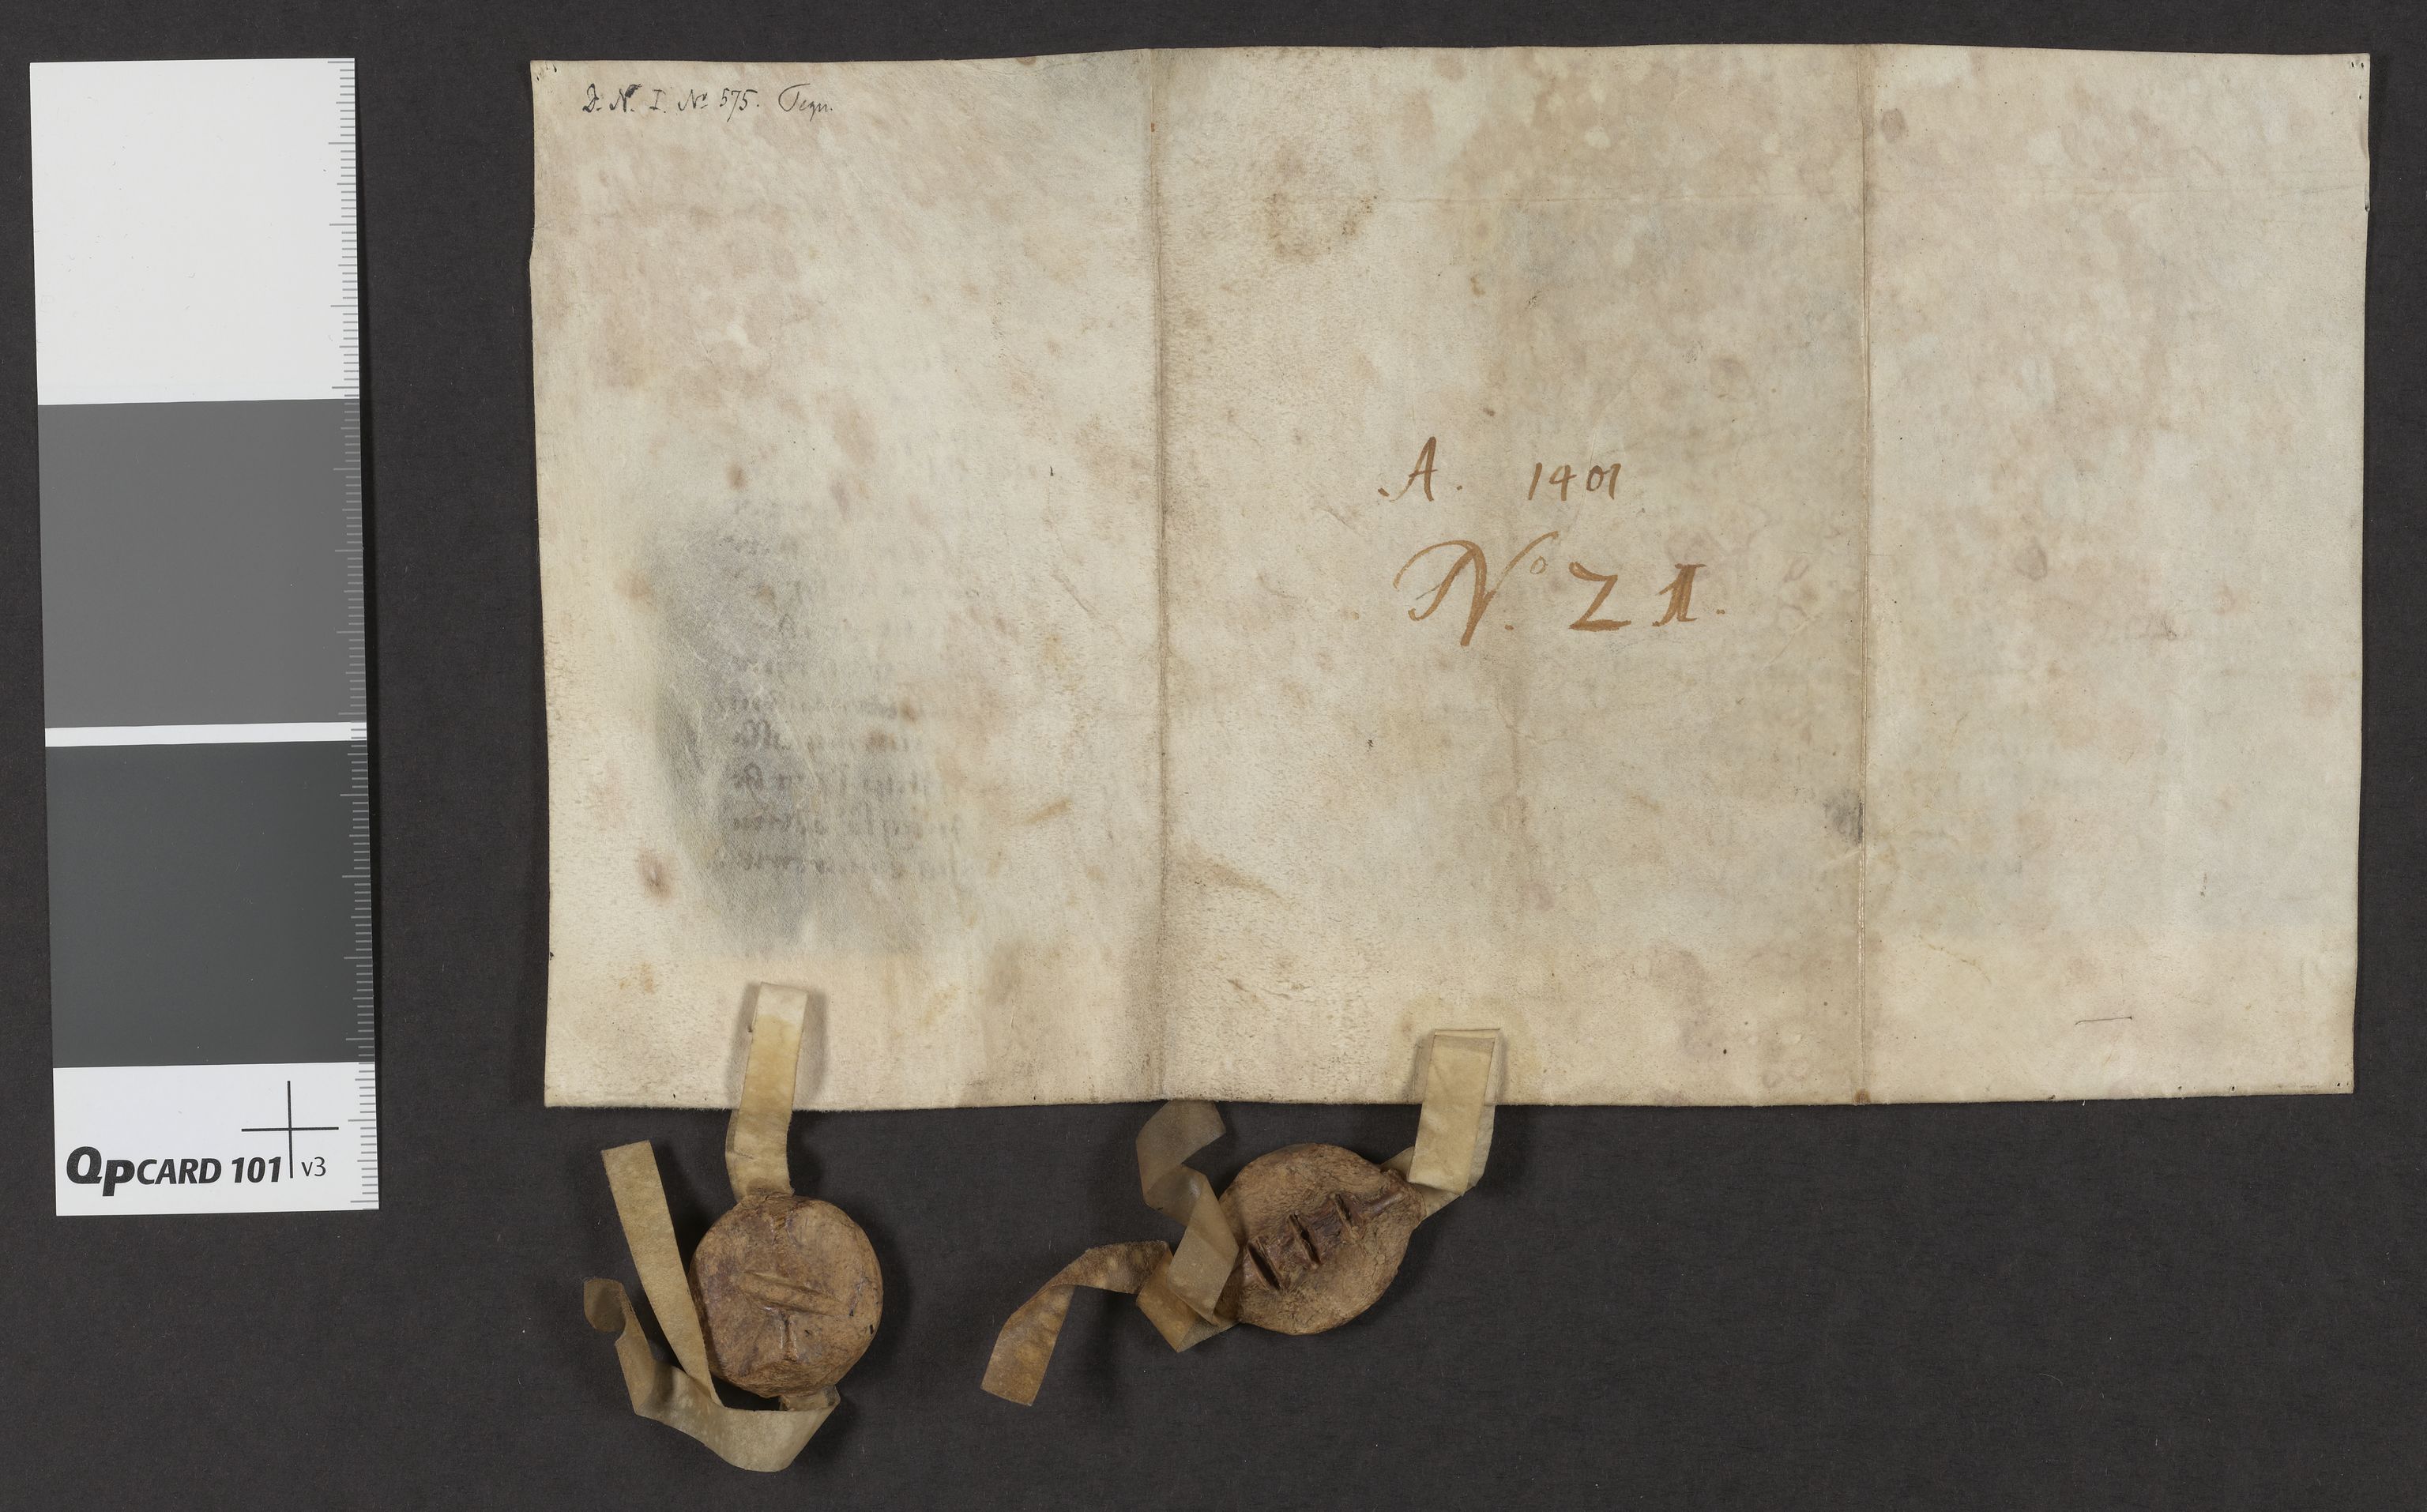 D. N. I. No 575. Tegn.
A. 1401
No. 21.
QpCARD 101 v3